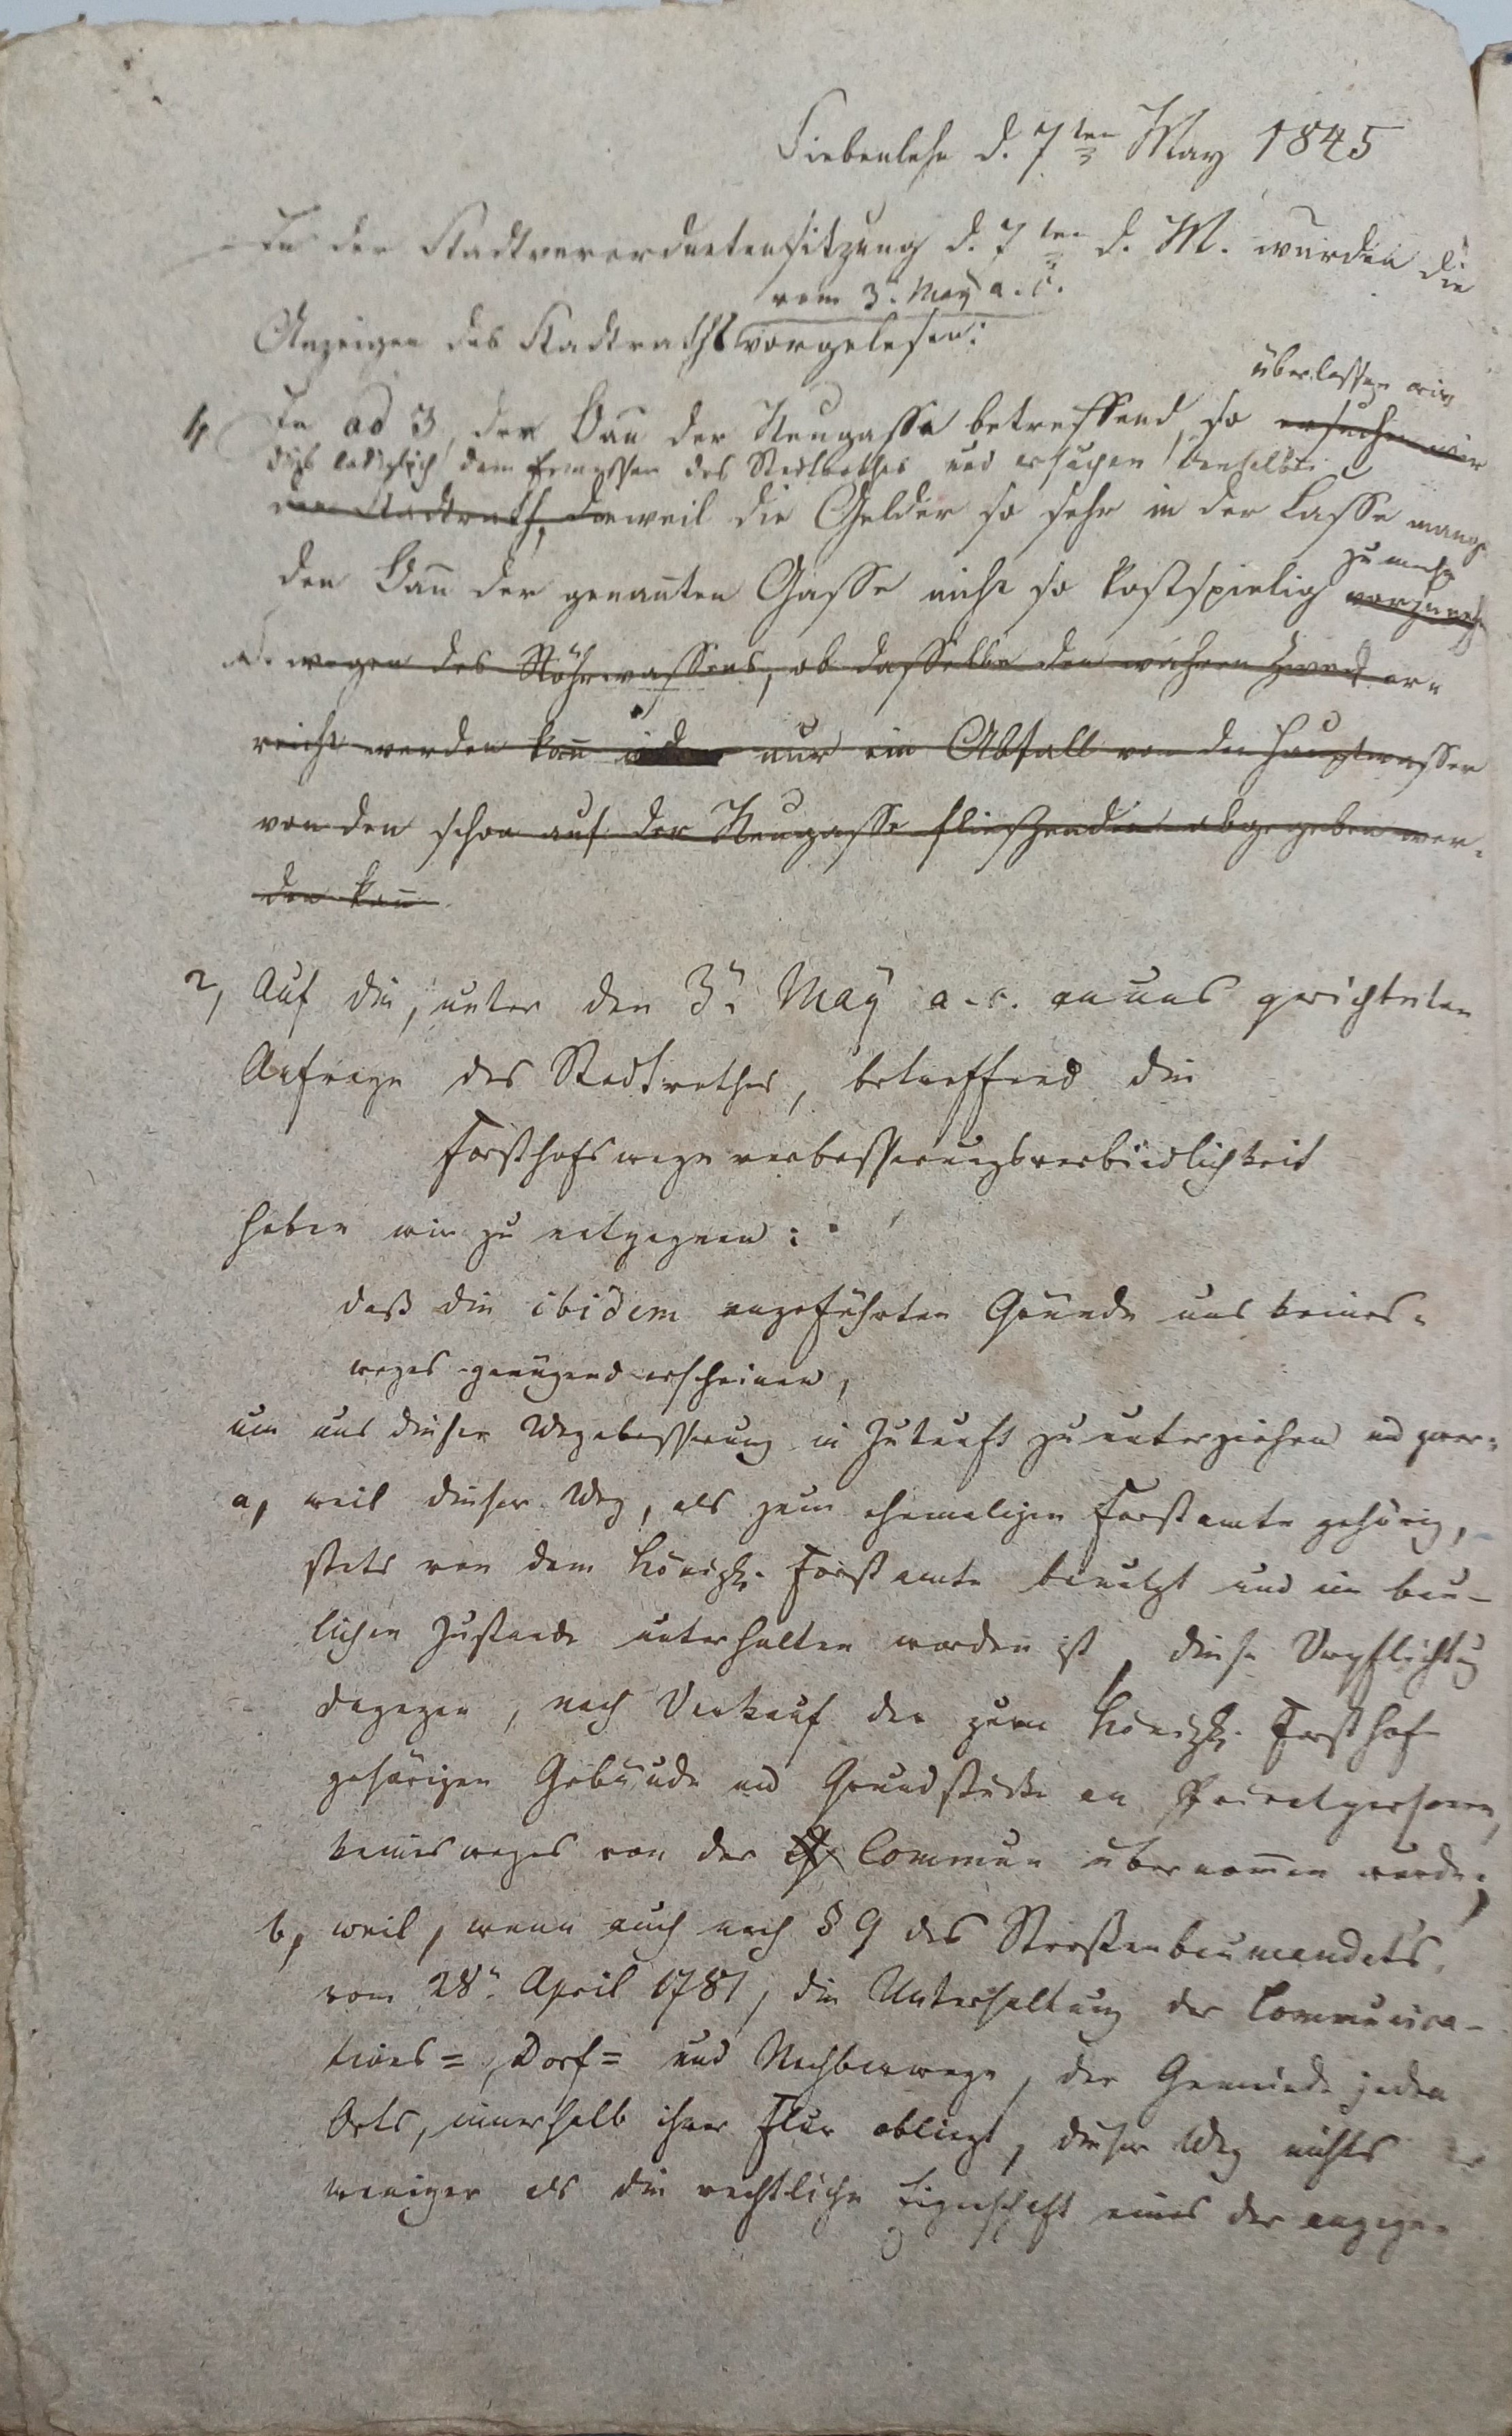 Siebenlehn d. 7ten May 1845
In der Stadtverordnetensitzung d. 7ten d. M. wurden die
vom 3. May a. c.
Anzeigen des Stadtraths vorgelesen:
überlassen wir
In ad 3, den Bau der Neugasse betreffend, so ersuchen wir
dieß lediglich dem Ermessen des Stadtrathes und ersuchen denselben
den Stadtrath, weil die Gelder so sehr in der Casse
zu
den Bau der genannten Gasse nicht so kostspielig
wegen des Röhrwassers, ob dasselbe den wahren Zweck er-
reicht werden kann nur ein Abfall von den Hauptwasser
von den schon auf der Neugasse fließenden abgegeben wer-
den kann
2, Auf die, unter den 3. May a. c. an uns gerichteten
Anfrage des Stadtrathes, betreffend die
Forsthofswegeverbesserungsverbindlichkeit
haben wir zu entgegnen:
daß die ibidem angeführten Gründe uns keines-
weges genügend erscheinen,
um uns dieser Wegebesserung in Zukunft zu unterziehen und zwar:
a, weil dieser Weg, als zum ehemaligen Forstamte gehörig,
stets von dem Königl. Forstamte benutzt und im bau-
lichen Zustande unterhalten worden ist, diese Verpflichtung
dagegen, nach Verkauf der zum Königl. Forsthof
gehörigen Gebäude und Grundstücke an Privatpersonen,
keinesweges von der Commun übernommen wurde;
b, weil, wenn auch nach § 9 des Straßenbaumandats
vom 28. April 1781, die Unterhaltung der Communica-
tions=, Dorf= und Nachbarwege, der Gemeinde jeden
Orts, innerhalb ihrer Flur obliegt, dieser Weg nichts
weniger als die rechtliche Eigenschaft eines der angege-